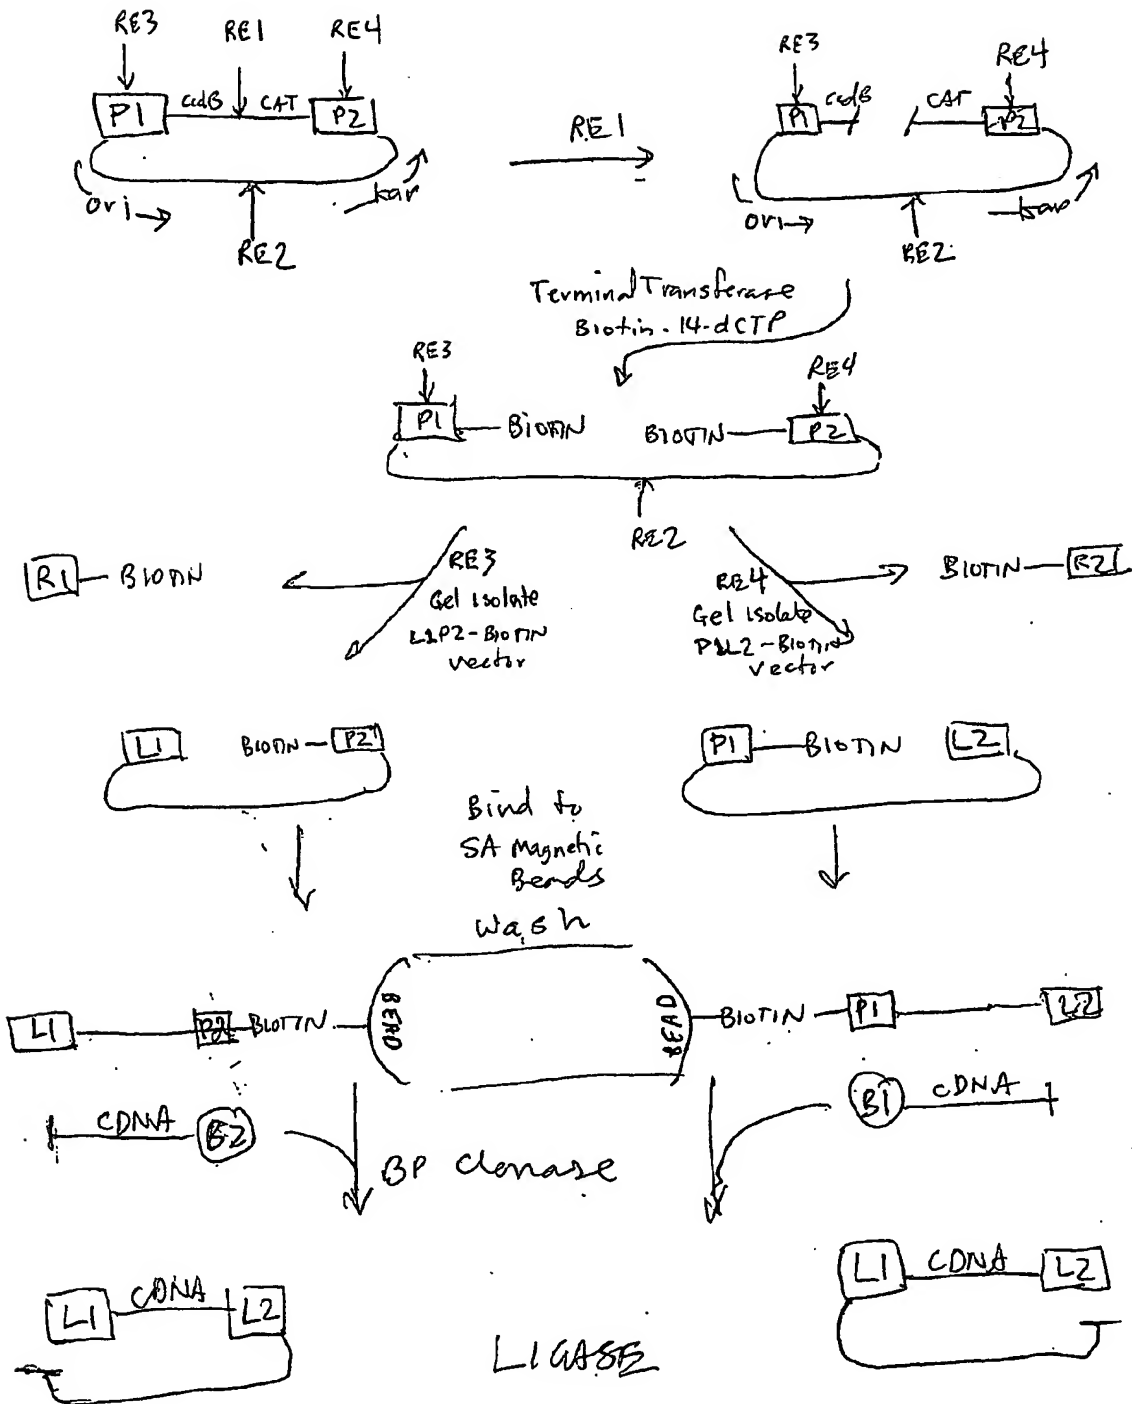 RE3 RE1 RE4
P1 ccdB CAT P2
ori kar
RE2
RE1
RE3 RE4
P1 ccdB CAT P2
ori kan
RE2
Terminal Transferase
Biotin-14-dCTP
RE3 RE4
P1 BIOTIN BIOTIN P2
RE2
R1 BIOTIN
RE3
Gel isolate
L1P2-BIOTIN
vector
RE4
Gel isolate
P1L2-BIOTIN
vector
BIOTIN R2
L1 BIOTIN P2
P1 BIOTIN L2
Bind to
SA Magnetic
Beads
Wash
L1 P2 BIOTIN BEAD
BEAD BIOTIN P1 L2
CDNA B2
B1 CDNA
BP Clonase
L1 CDNA L2
LIGASE
L1 CDNA L2